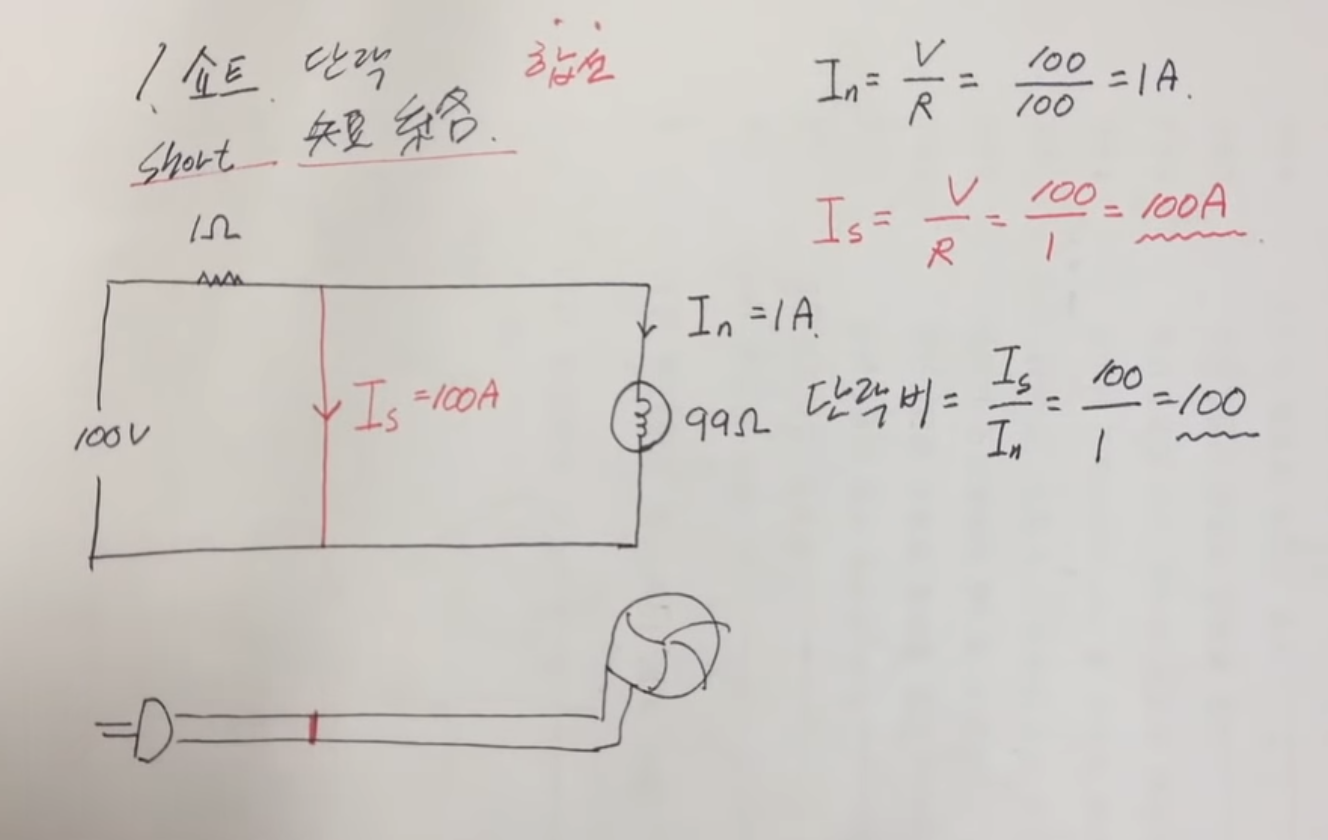 1. 쇼트 단락 합선
short 短絡.
1Ω
100V
Is=100A
In=1A.
99Ω
In= V/R = 100/100 =1A.
Is= V/R = 100/1 = 100A.
단락비= Is/In = 100/1 =100